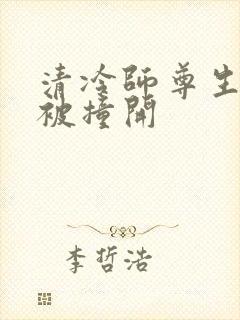 清冷师尊生
被撞开
李哲浩